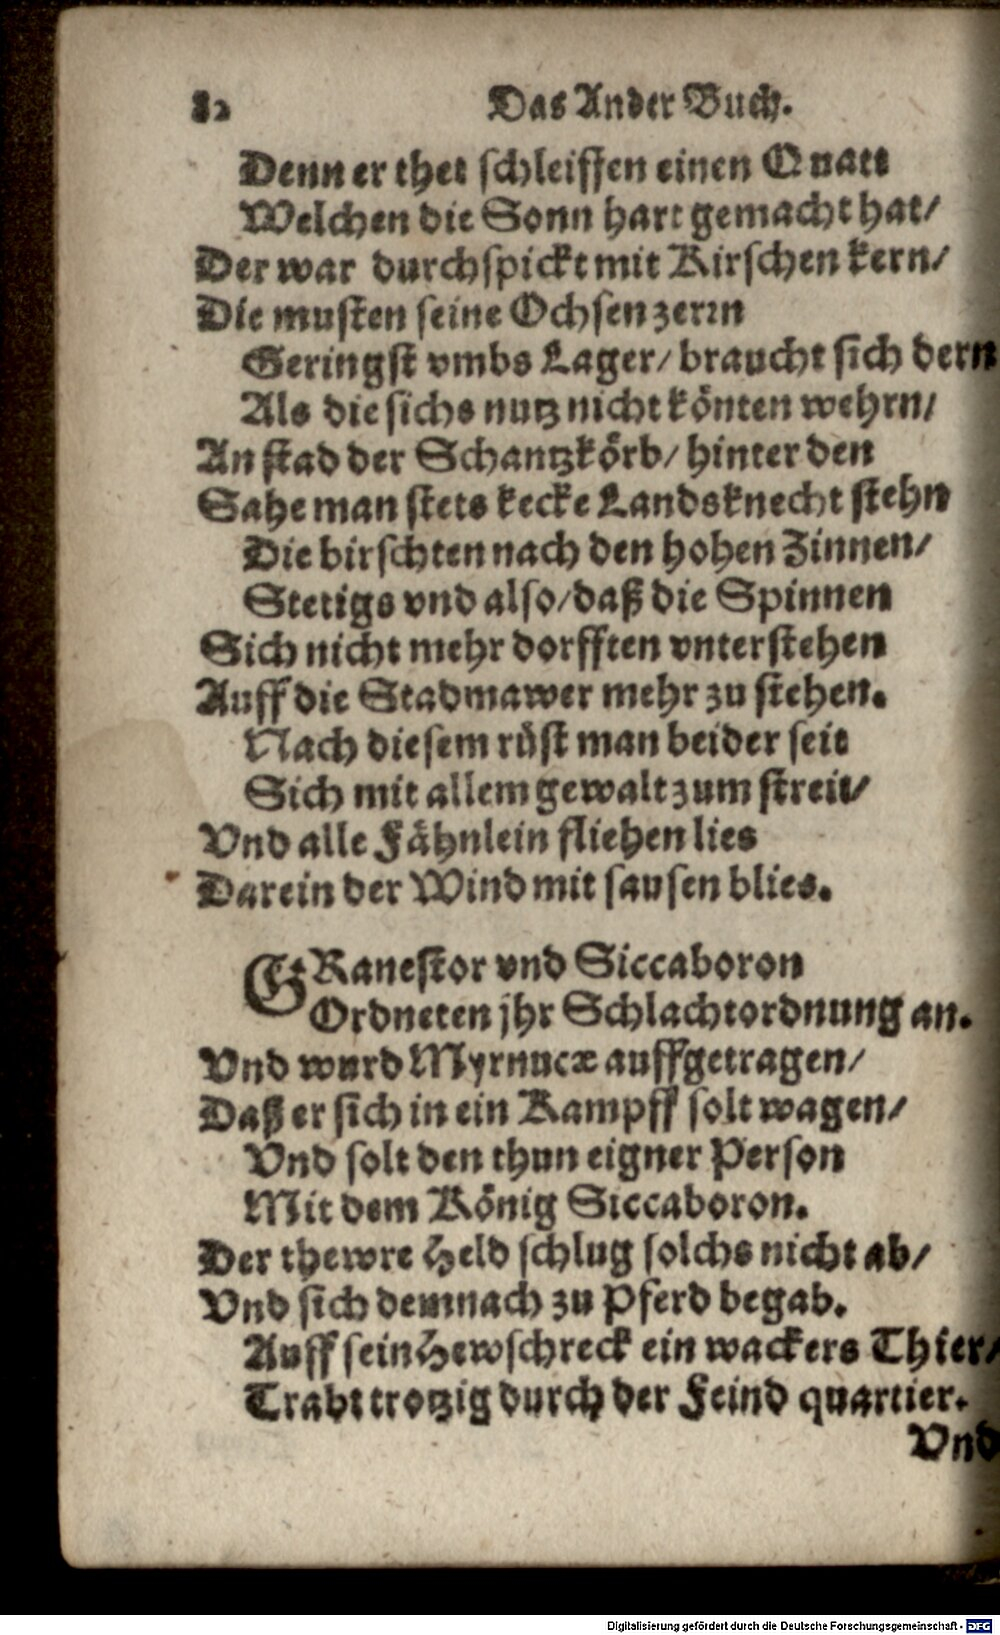 82 Das Ander Buch.
Denn er thet schleiffen einen Quatt
Welchen die Sonn hart gemacht hat/
Der war durchspickt mit Kirschen kern/
Die musten seine Ochsen zerrn
Geringst vmbs Lager/ braucht sich dern
Als die sichs nutz nicht könten wehrn/
An stad der Schantzkörb/ hinter den
Sahe man stets kecke Landsknecht stehn
Die birschten nach den hohen Zinnen/
Stetigs vnd also/ daß die Spinnen
Sich nicht mehr dorfften vnterstehen
Auff die Stadmawer mehr zu stehen.
Nach diesem rüst man beider seit
Sich mit allem gewalt zum streit/
Vnd alle Fähnlein fliehen lies
Darein der Wind mit sausen blies.
GRanestor vnd Siccaboron
Ordneten jhr Schlachtordnung an.
Vnd wurd Myrnucæ auffgetragen/
Daß er sich in ein Kampff solt wagen/
Vnd solt den thun eigner Person
Mit dem König Siccaboron.
Der thewre Held schlug solchs nicht ab/
Vnd sich demnach zu Pferd begab.
Auff sein Hewschreck ein wackers Thier/
Trabt trotzig durch der Feind quartier.
Vnd
Digitalisierung gefördert durch die Deutsche Forschungsgemeinschaft - DFG